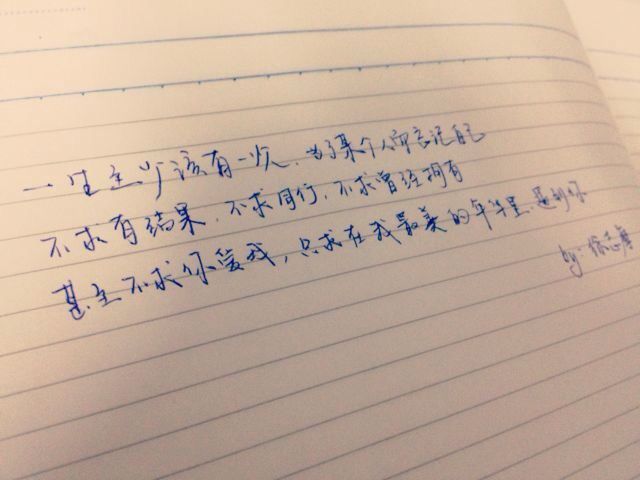 一生至少该有一次，为了某个人而忘记自己
不求有结果，不求同行，不求曾经拥有
甚至不求你爱我，只求在我最美的年华里，遇到你
by：徐志摩